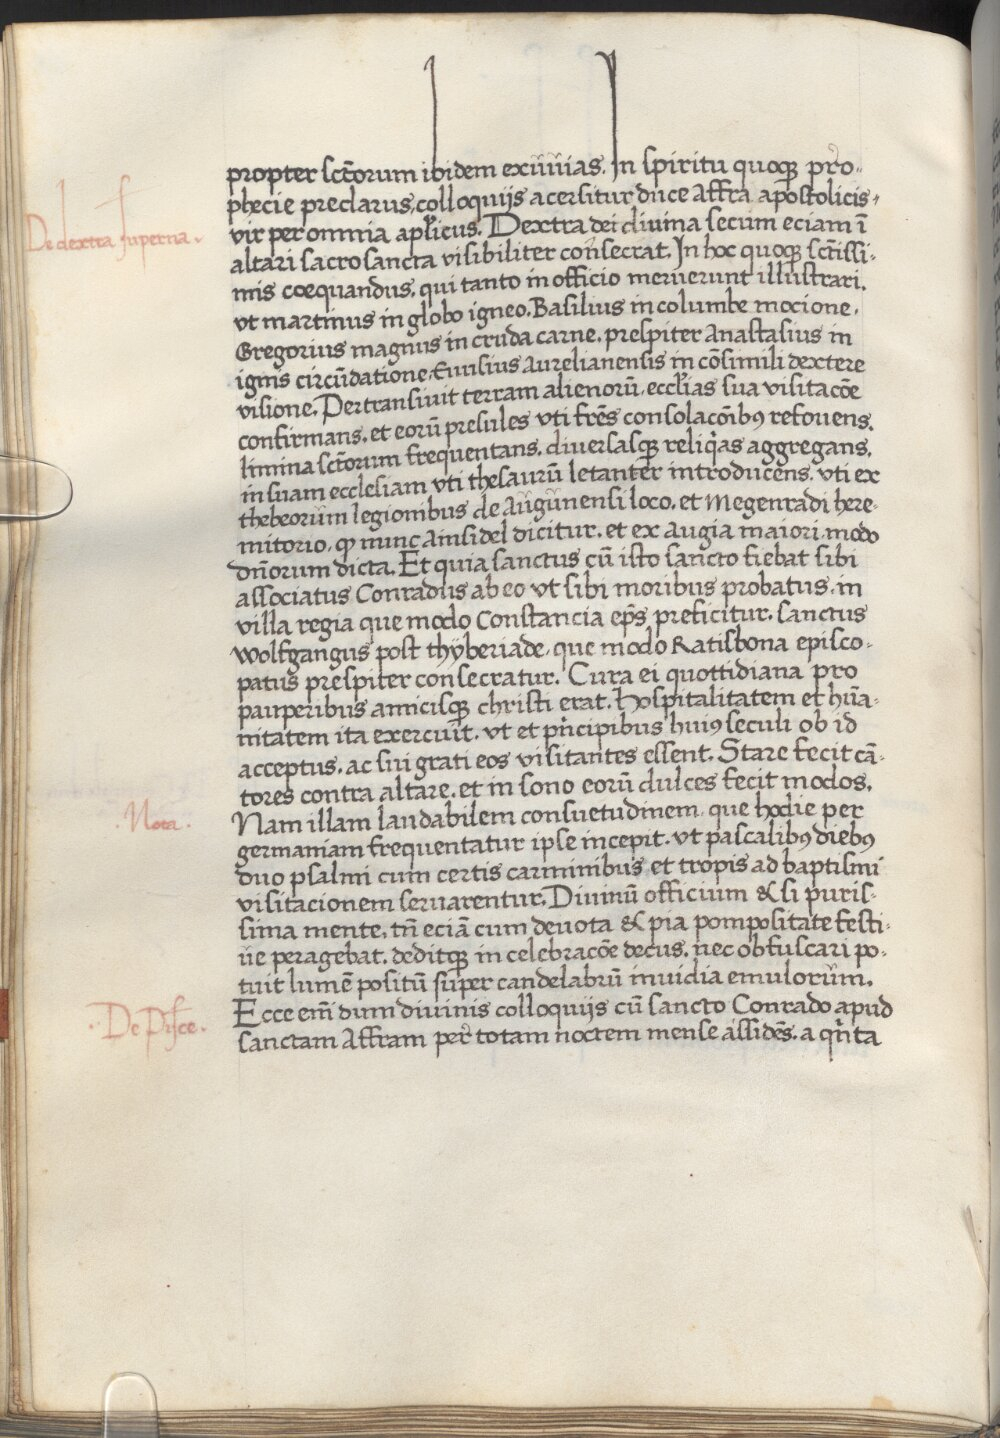 propter sct̄orum ibidem exüüias. In spiritu quoqꝫ pro-
De dextra superna.
phecie preclarus, colloquijs acersitur duce Affra apostolicis,
vir per omnia apl̄icus. Dextra dei diuina secum eciam ī
altari sacrosancta visibiliter consecrat. In hoc quoqꝫ sct̄issi-
mis coequandus, qui tanto in officio meruerunt illustrari.
vt martinus in globo igneo. Basilius in columbe mocione.
Gregorius magnus in cruda carne. prespiter Anastasius in
ignis circūdatione. Eurisius Aurelianensis in cōsimili dextere
visione. Pertransiuit terram alienorū, eccl̄ias sua visitacōe
confirmans, et eorū presules vti frēs consolacōibꝰ refouens.
limina sct̄orum frequentans, diuersasqꝫ reliq̄as aggregans.
in suam ecclesiam vti thesaurū letanter introducens. vti ex
thebeorüm legionibus de Aügünensi loco, et Megenradi here-
mitorio, qꝫ nunc Ainsidel dicitur. et ex Augia maiori modo
dn̄orum dicta. Et quia sanctus cū isto sancto fiebat sibi
associatus Conradus ab eo vt sibi moribus probatus, in
villa regia que modo Constancia ep̄s preficitur. sanctus
wolfgangus post thÿberiade, que modo Ratisbona episco-
patus prespiter consecratur. Cura ei quottidiana pro
pauperibus amicisqꝫ christi erat. Hospitalitatem et hūa-
nitatem ita exercuit. vt et pn̄cipibus huiꝰ seculi ob id
acceptus. ac sui grati eos visitantes essent. Stare fecit cā-
tores contra altare. et in sono eorū dulces fecit modos.
.Nota.
Nam illam laudabilem consuetudinem, que hodie per
germaniam frequentatur ipse incepit. vt pascalibꝰ diebꝰ
duo psalmi cum certis carminibus et tropis ad baptismi
visitacionem seruarentur. Diuinū officium & si puris-
sima mente, tn̄ eciā cum deuota & pia pompositate festi-
üe peragebat. deditqꝫ in celebracōe decus. nec obfuscari po-
tuit lumē positū super candelabrū inuidia emulorüm.
.De Pisce.
Ecce em̄ dum diuinis colloquijs cū sancto Conrado apud
sanctam Affram per totam noctem mense assidēs. a qn̄ta